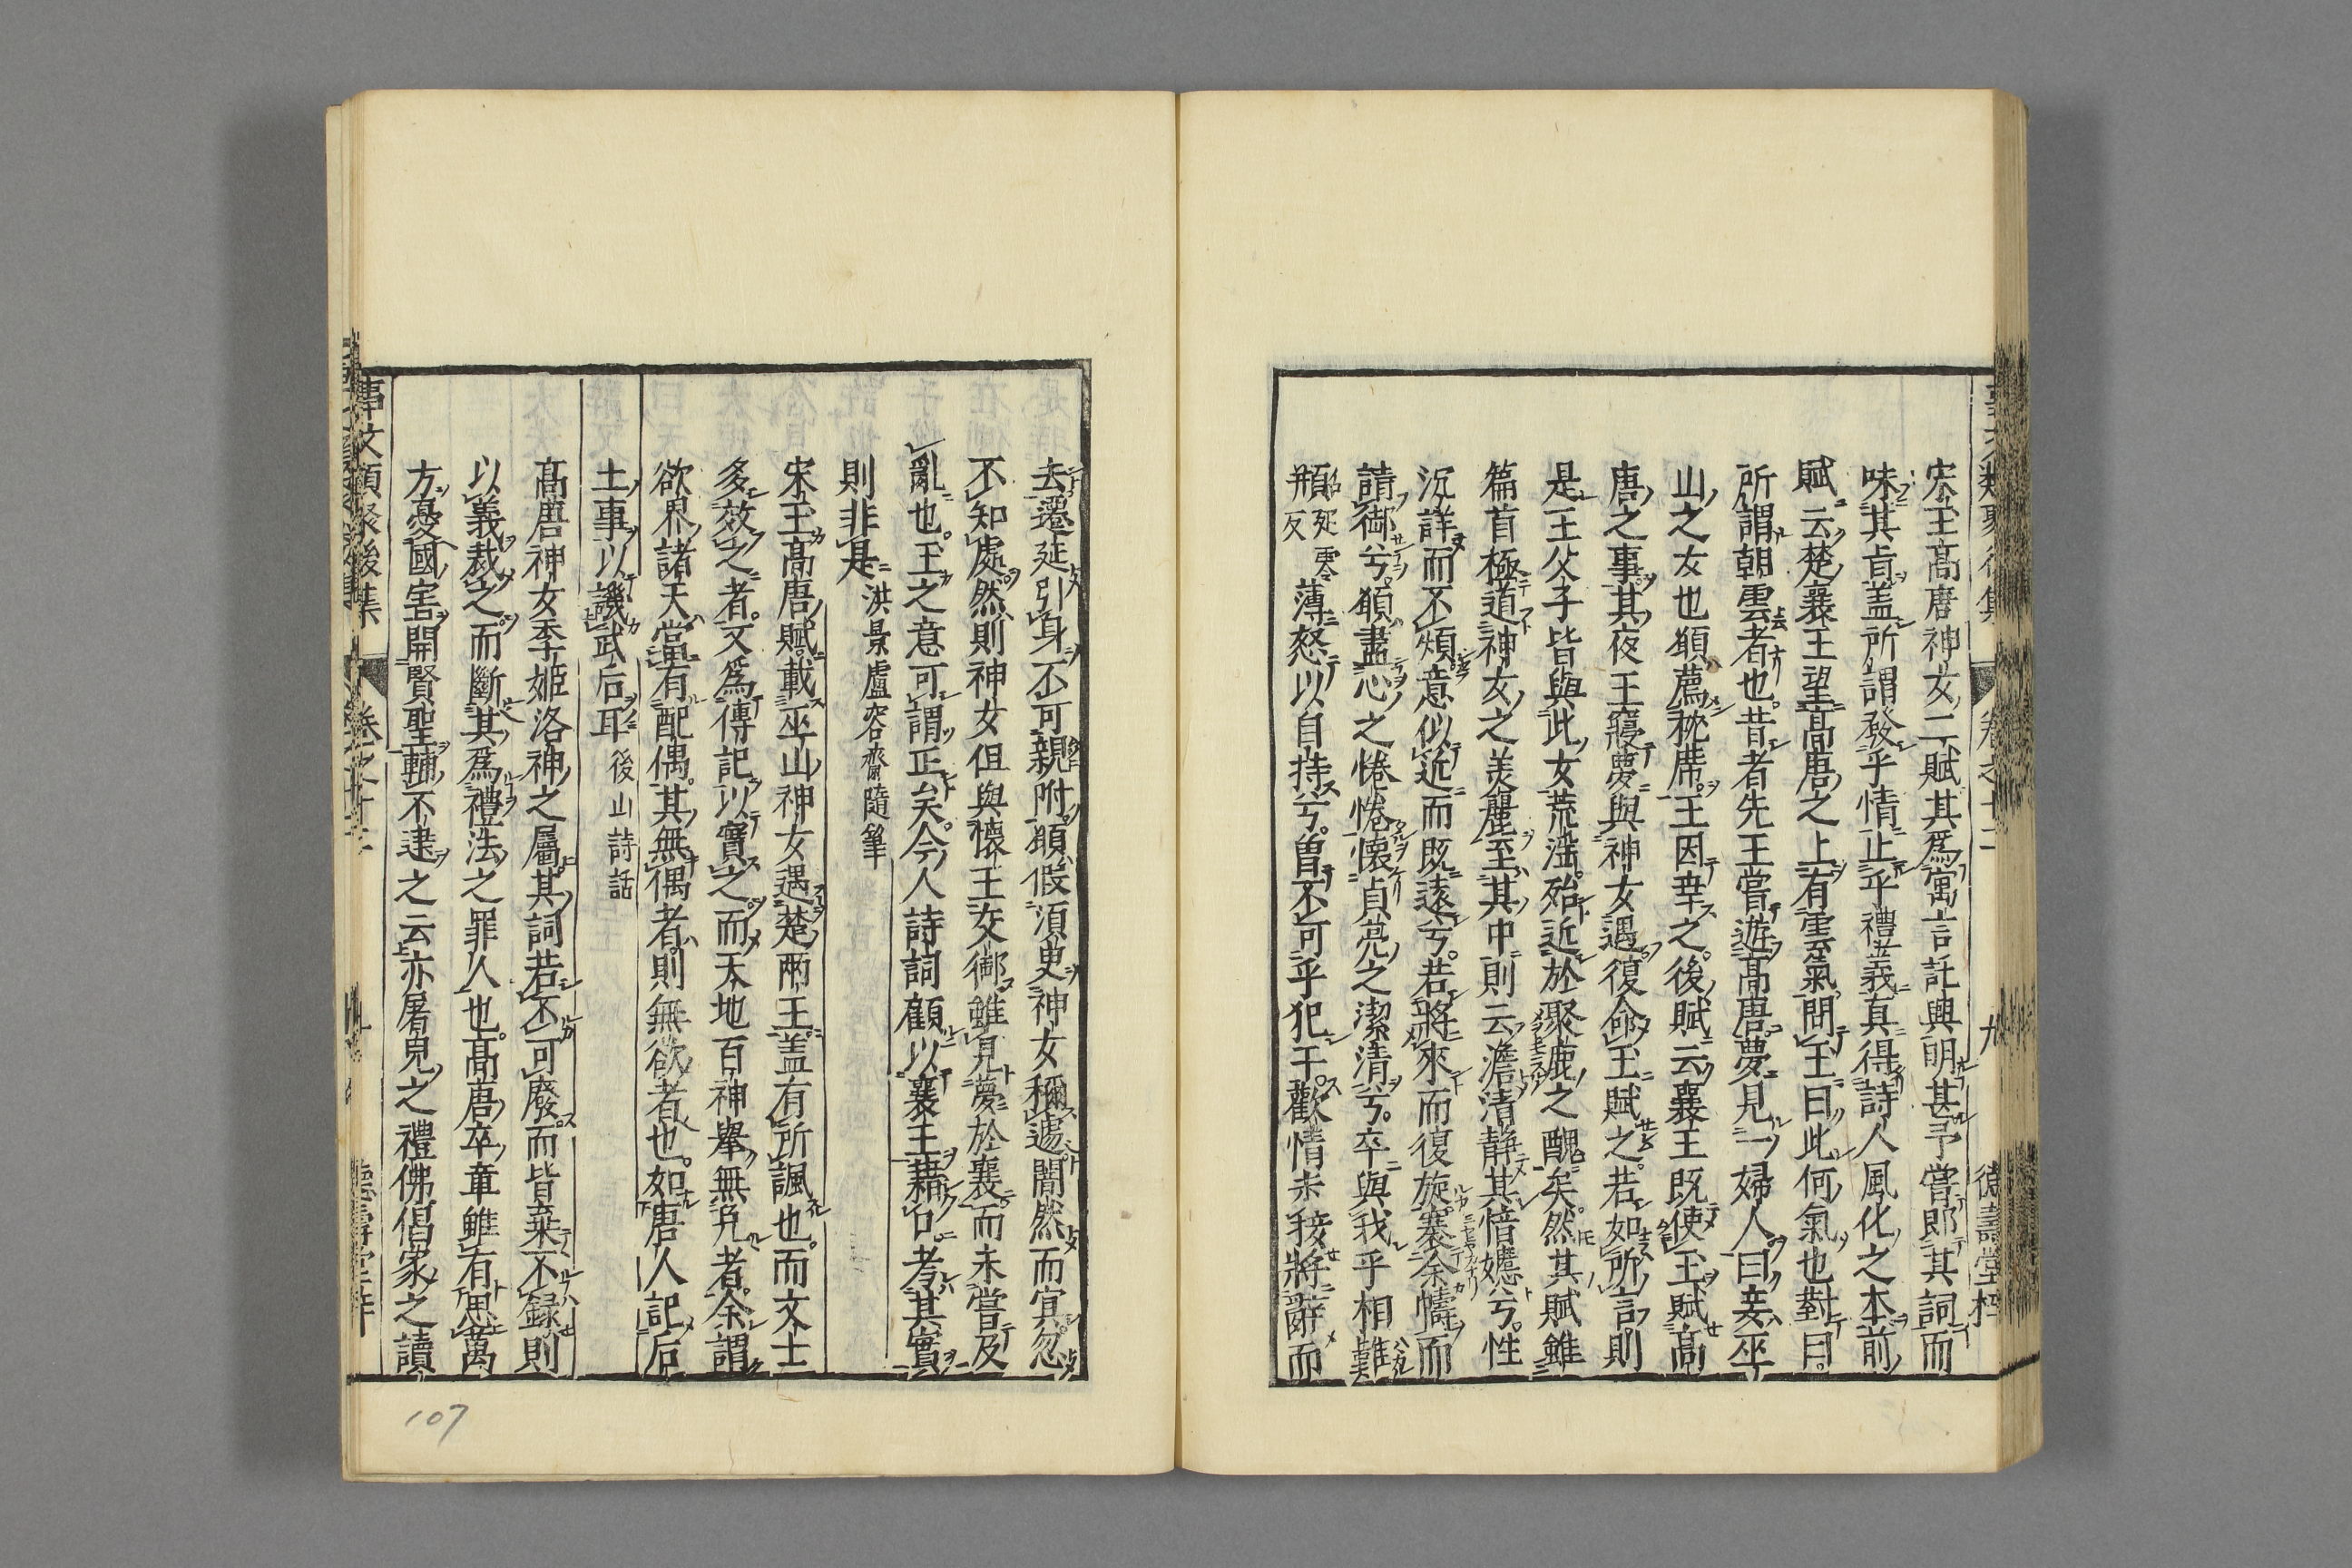 宋玉高唐神女二賦其爲寓言託興明甚予嘗郎其詞而
味其㫖盖所謂發乎情止乎禮義真得詩人風化之本前
賦云楚襄王望高唐之上有雲氣問王曰此何氣也對曰
所謂朝雲者也昔者先王嘗遊高唐夢見一婦人曰妾巫
山之女也願薦枕席王因幸之後賦云襄王既使玉賦髙
唐之事其夜王寢夢與神女遇復命玉賦之若如所言則
是王父子皆與此女荒淫殆近於聚麀之醜矣然其賦雖
篇首極道神女之美麗至其中則云澹清静其愔嫕兮性
沉詳而不煩意似近而既遠兮若將來而復旋褰余幬而
請御兮願盡心之惓惓懷貞亮之潔清兮卒與我乎相難
頩薄怒以自持兮曽不可乎犯干歡情未接將辭而
去遷延引身不可親附願假須臾神女稱遽闇然而冥忽
不知處然則神女但與懷王交御雖見夢於襄而未嘗及
亂也王之意可謂正矣今人詩詞顧以襄王藉口考其實
則非是 洪景盧容齋隨筆
宋玉高唐賦載巫山神女遇楚兩王盖有所諷也而文士
多效之者又爲傳記以實之而天地百神舉無免者余謂
欲界諸天當有配偶其無偶者則無欲者也如唐人記后
土事以譏武后耳 後山詩話
髙唐神女季姬洛神之屬其詞若不可廢而皆棄不録則
以義裁之而斷其爲禮法之罪人也髙唐卒章雖有思萬
方憂國害開賢聖輔不逮之云亦屠兒之禮佛倡家之讀
107